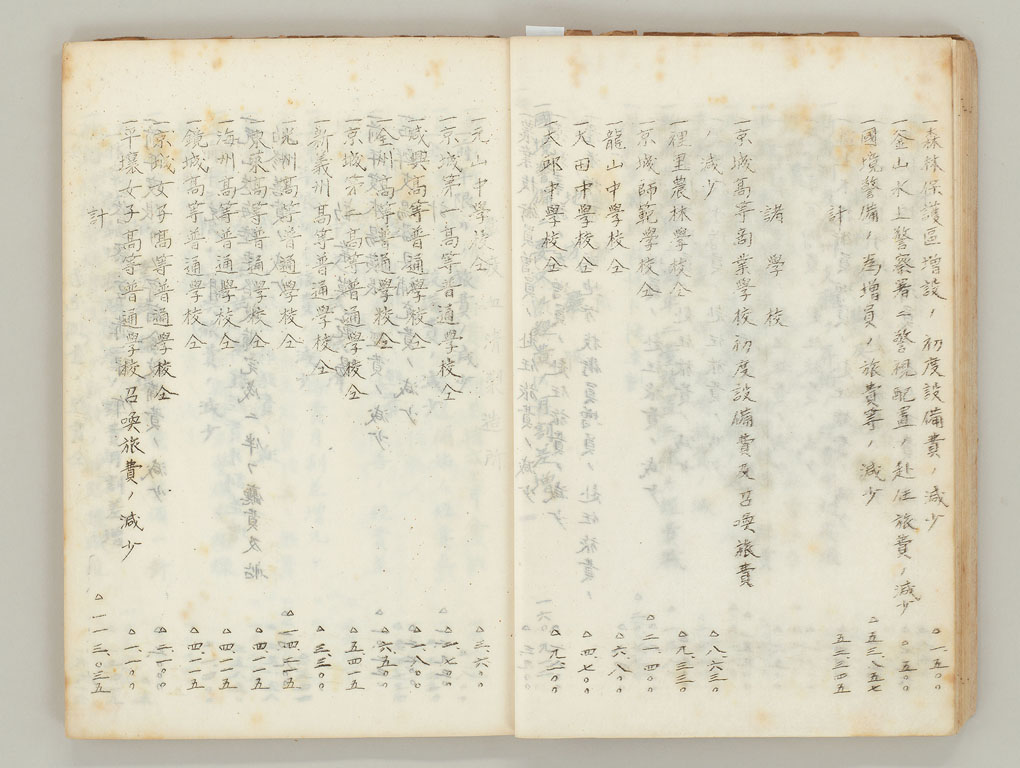 一森林保護區增設ノ初度設備費ノ減少 △一、五〇〇
一釜山水上警察署ニ警視配置ノ赴任旅費ノ減少 △五〇〇
一國境警備ノ為增員ノ旅費等ノ減少 △五三、八五七
計
諸學校
一京城高等商業學校初度設備費及召喚旅費
ノ減少 △八、六三〇
一裡里農林學校仝 △九、三三〇
一京城師範學校仝 △二一、四〇〇
一龍山中學校仝 △六、八〇〇
一大田中學校仝 △四、七〇〇
一大邱中學校仝
一元山中學校仝 △三、六〇〇
一京城第一高等普通學校仝 △二、七〇〇
一咸興高等普通學校仝 △一、八〇〇
一全州高等普通學校仝 △六、五〇〇
一京城第二高等普通學校仝 △五、四一五
一新義州高等普通學校仝 △三、三〇〇
一光州高等普通學校仝 △一四、二一五
一東萊高等普通學校仝 △四、一一五
一海州高等普通學校仝 △四、一一五
一鏡城高等普通學校仝 △四、一一五
一京城女子高等普通學校仝 △二、一〇〇
一平壤女子高等普通學校召喚旅費ノ減少 △一、一〇〇
計 △一一三、〇三五